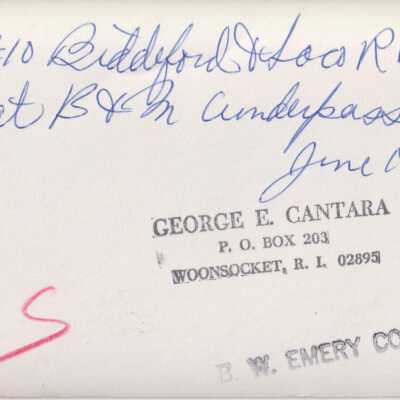 #10 Biddeford & Saco R
at B & M Underpass
June
GEORGE E. CANTARA
P. O. BOX 203
WOONSOCKET, R. I. 02895
S
E. W. EMERY CO